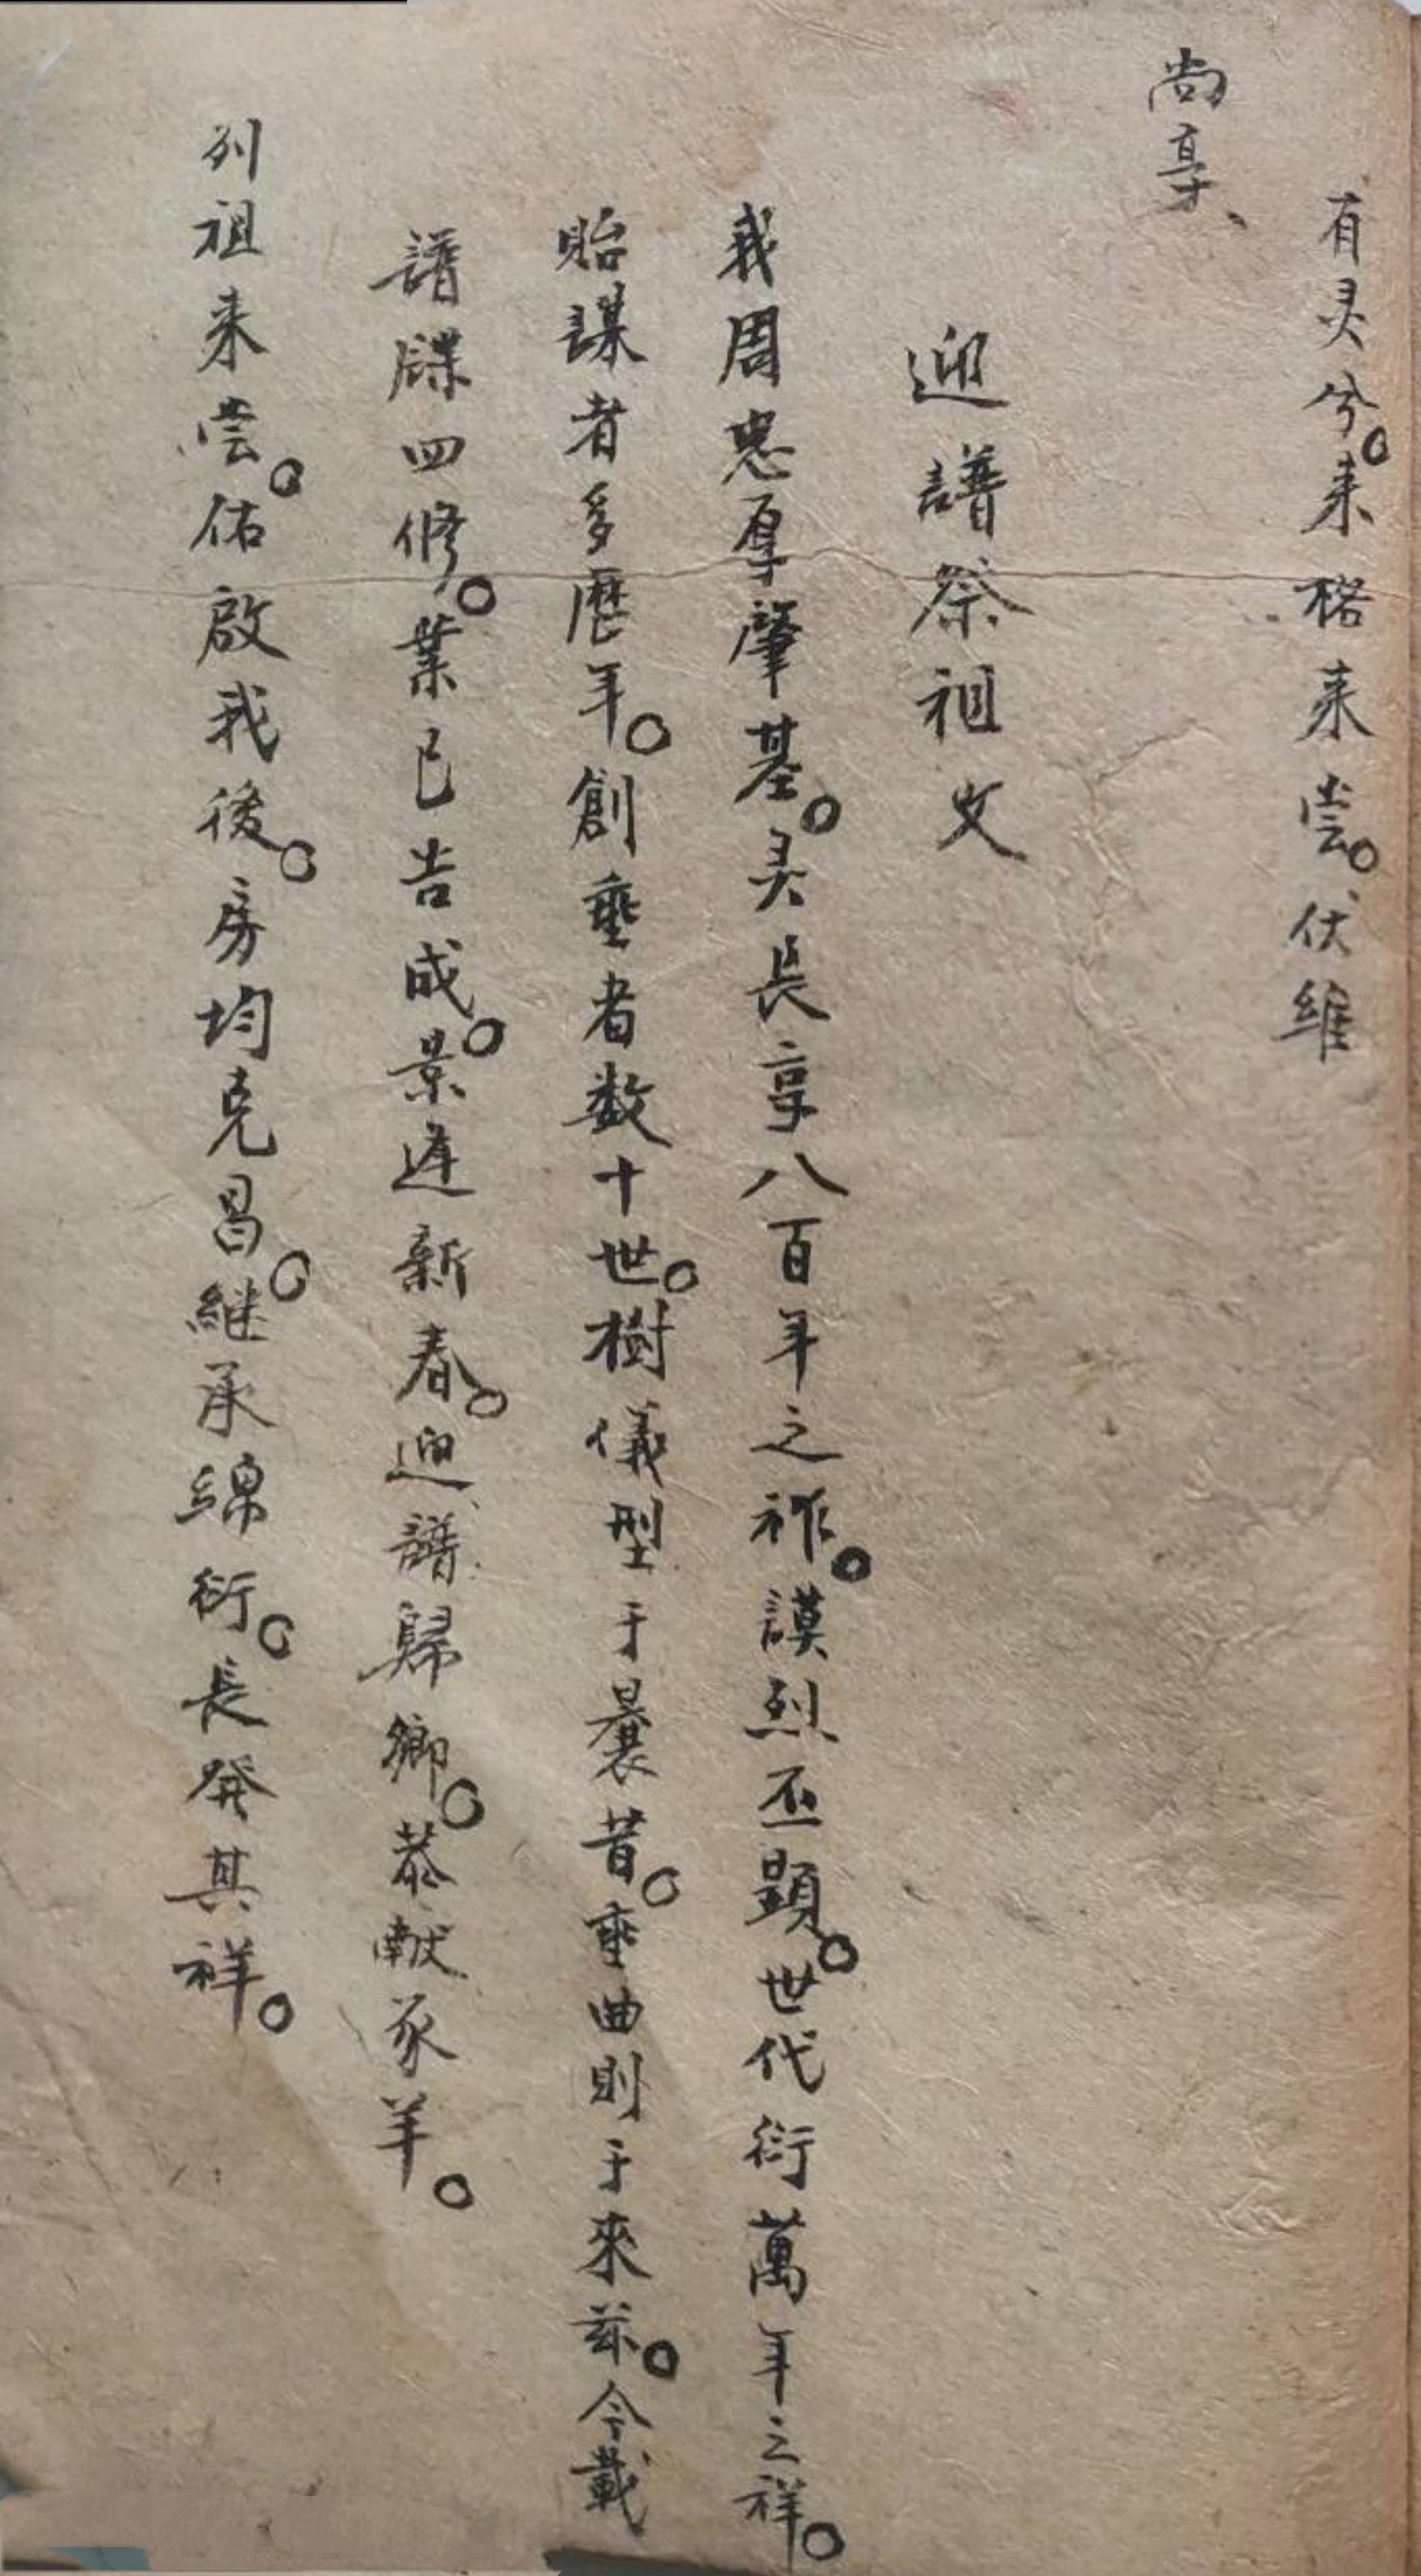 有灵兮。来格来尝。伏維
尚享、
迎譜祭祖文
我周忠厚肇基。灵長享八百年之祚。謨烈丕顯。世代衍萬年之祥。
貽謀者多歷年。創垂者数十世。樹儀型于曩昔。垂典則于來茲。今載
譜牒四修。業已告成。景逢新春。迎譜歸鄉。恭献豕羊。
列祖来尝。佑啟我後。房均克昌。継承綿衍。長發其祥。